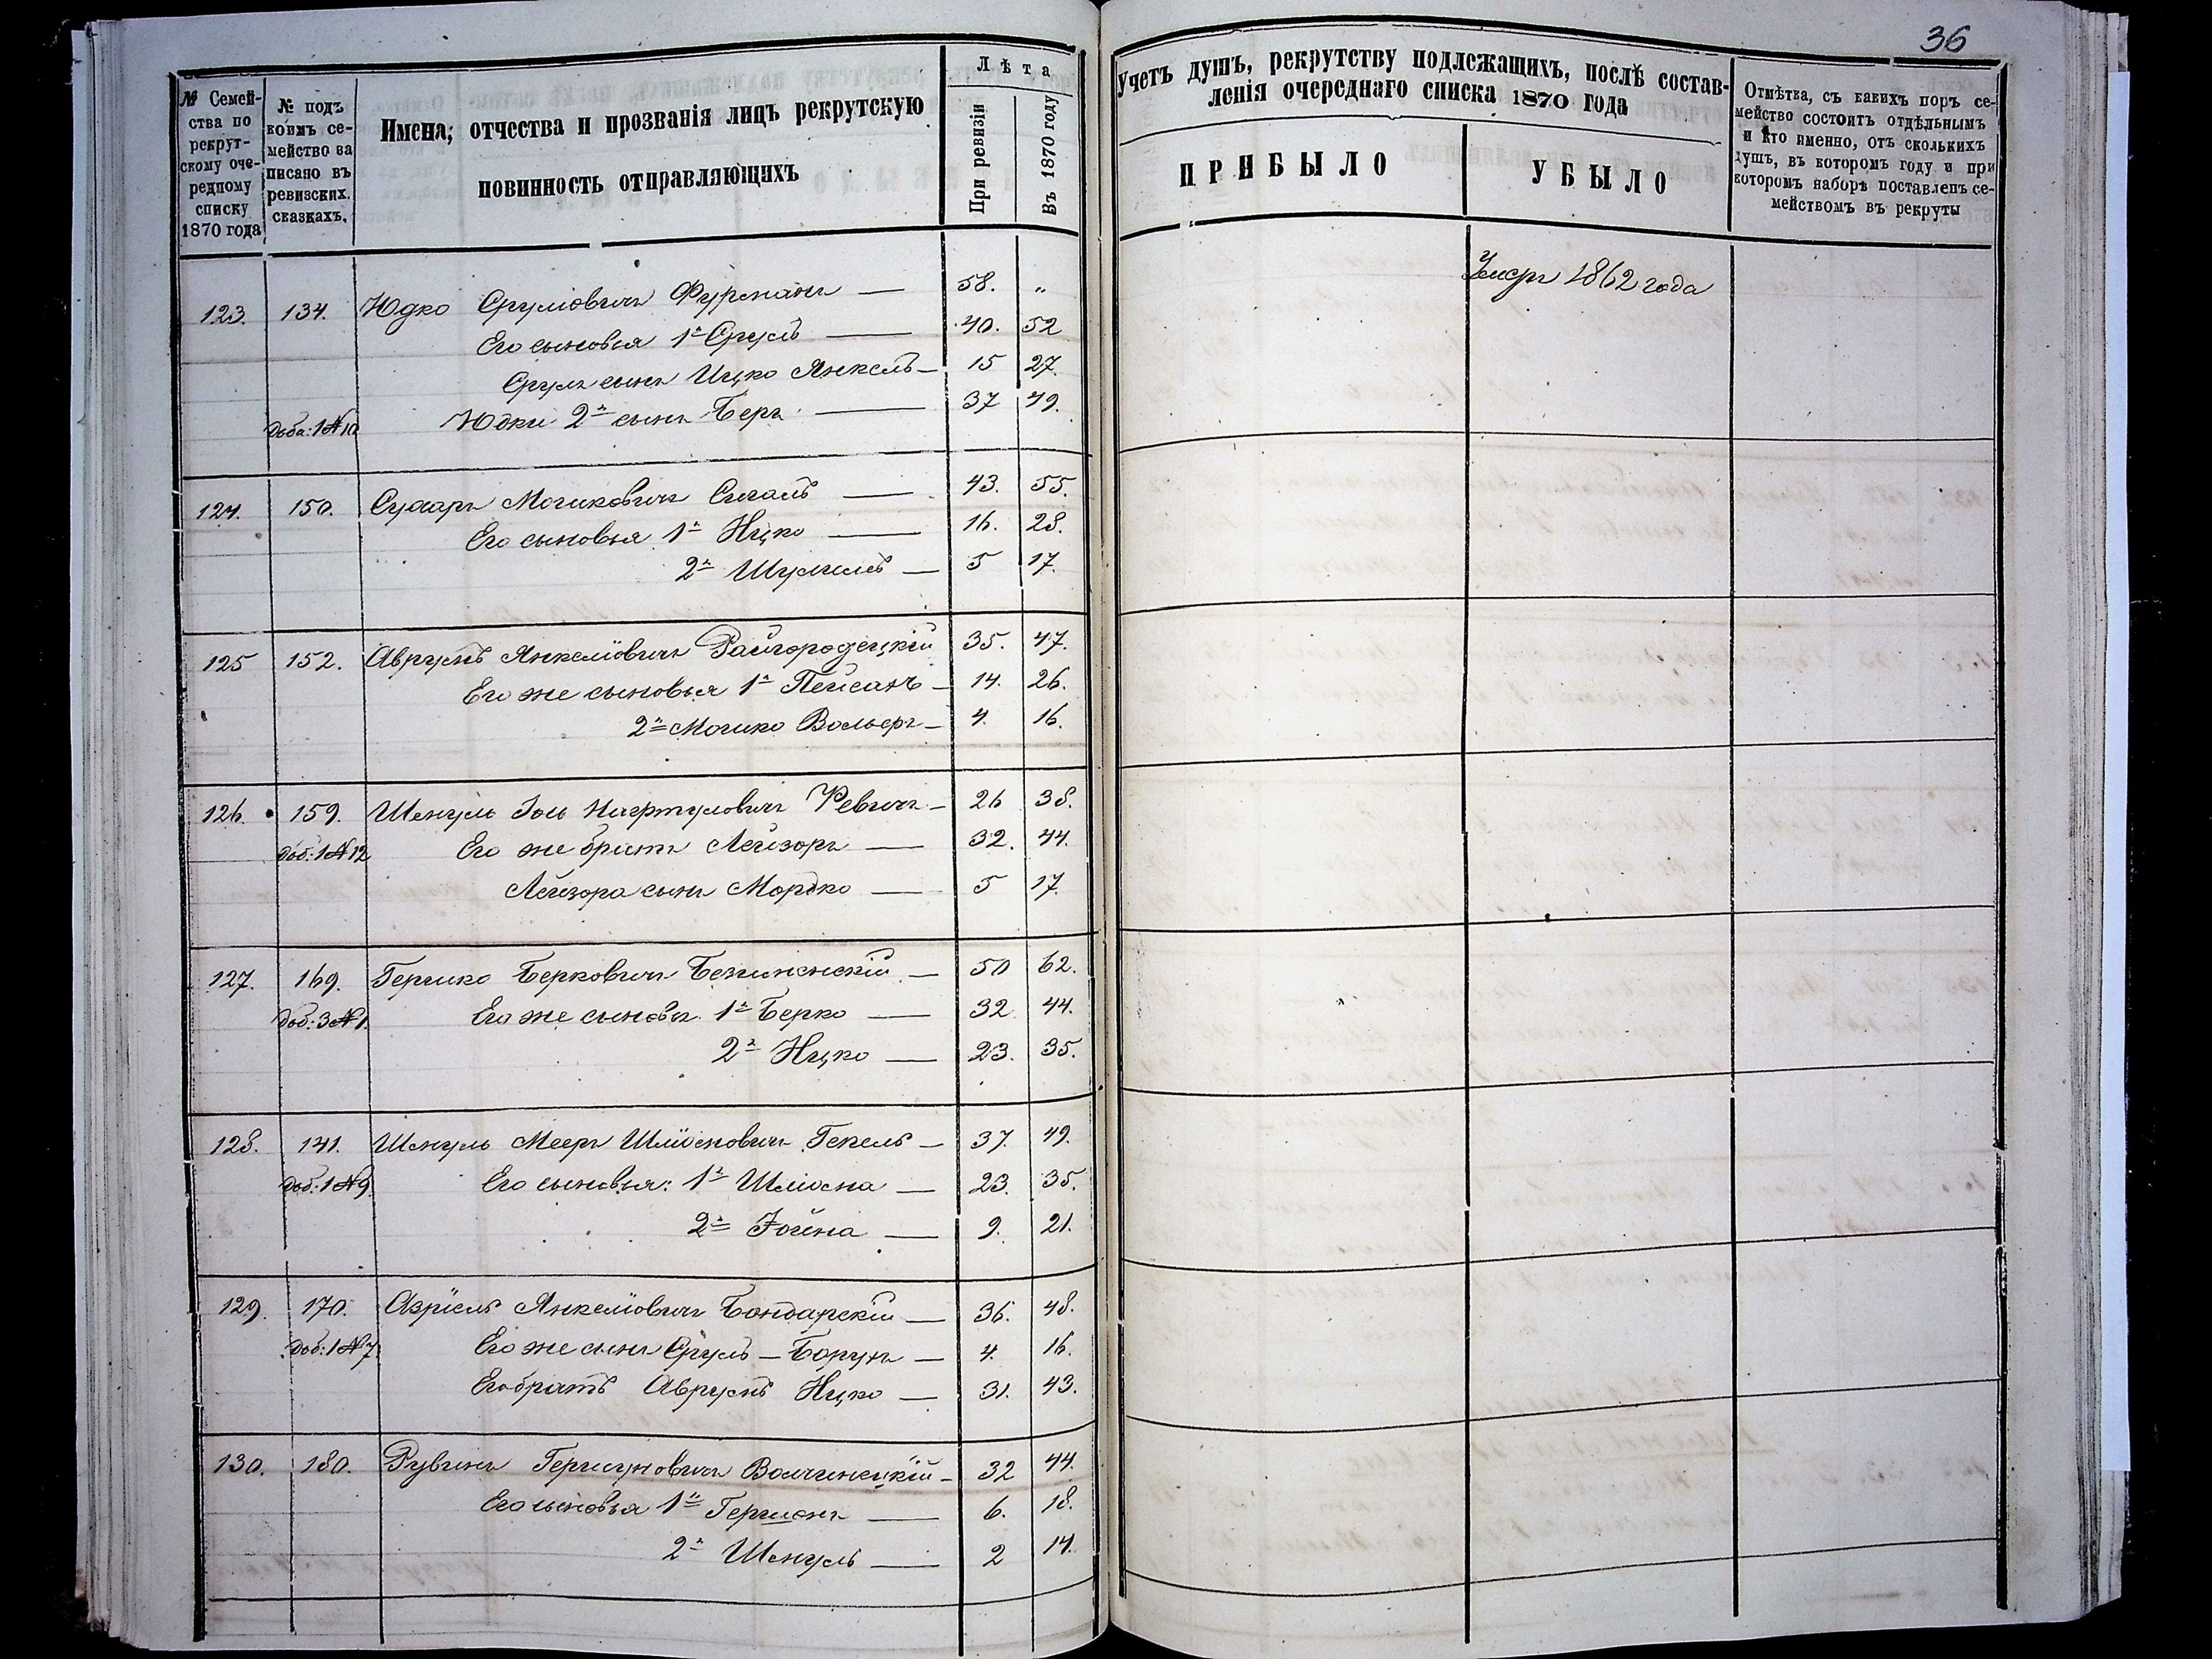 36
№ Семей-
ства по
рекрут-
скому оче-
редному
списку
1870 года
№ подъ
коимъ се-
мейство за
писано въ
ревизских.
сказкахъ.
Имена; отчества и прозванія лицъ рекрутскую
повинность отправляющихъ
Лѣта
При ревизіи
Въ 1870 году
Учетъ душъ, рекрутству подлежащихъ, послѣ состав-
ленія очереднаго списка 1870 года
ПРИБЫЛО
УБЫЛО
Отмѣтка, съ какихъ поръ се-
мейство состоитъ отдѣльнымъ
и кто именно, отъ сколькихъ
душъ, въ которомъ году и при
которомъ наборѣ поставленъ се-
мействомъ въ рекруты
123. 134. Юдко Сруліовичъ Фурманъ — 58. „ Умеръ 1862 года
Его сыновья 1й Сруль — 40. 52
Сруля сынъ Ицко Янкель — 15 27.
доба: 1 № 10 Юдки 2й сынъ Беръ — 37 49.
124. 150. Сухаръ Мошковичъ Сигалъ — 43. 55.
Его сыновья 1й Ицко — 16. 28.
2й Шулимъ — 5 17.
125 152. Аврумъ Янкеліовичъ Райгородецкій 35. 47.
Его же сыновья 1й Пейсахъ — 14. 26.
2й Мошко Вольферъ — 4. 16.
126. 159. Шмуль Іось Ревичъ — 26 38.
доб: 1 № 12 Его же братъ Лейзоръ — 32. 44.
Лейзора сынъ Мордко — 5 17.
127. 169. Гершко Берковичъ — 50 62.
доб: 3 № 1. Его же сыновья 1й Берко — 32 44.
2й Ицко — 23. 35.
128. 141. Шмуль Мееръ Шліомовичъ Гекель — 37. 49.
доб: 1 № 9. Его сыновья: 1й Шліома — 23. 35.
2й Іойна — 9. 21.
129. 170. Азріель Янкеліовичъ Бондарскій — 36. 48.
доб: 1 № 7. Его же сынъ Сруль — Борухъ — 4. 16.
Его братъ Аврумъ Ицко — 31. 43.
130. 180. Рувинъ Гершуновичъ Волчинецкій — 32 44.
Его сыновья 1й Гершонъ — 6. 18.
2й Шмуль — 2 14.